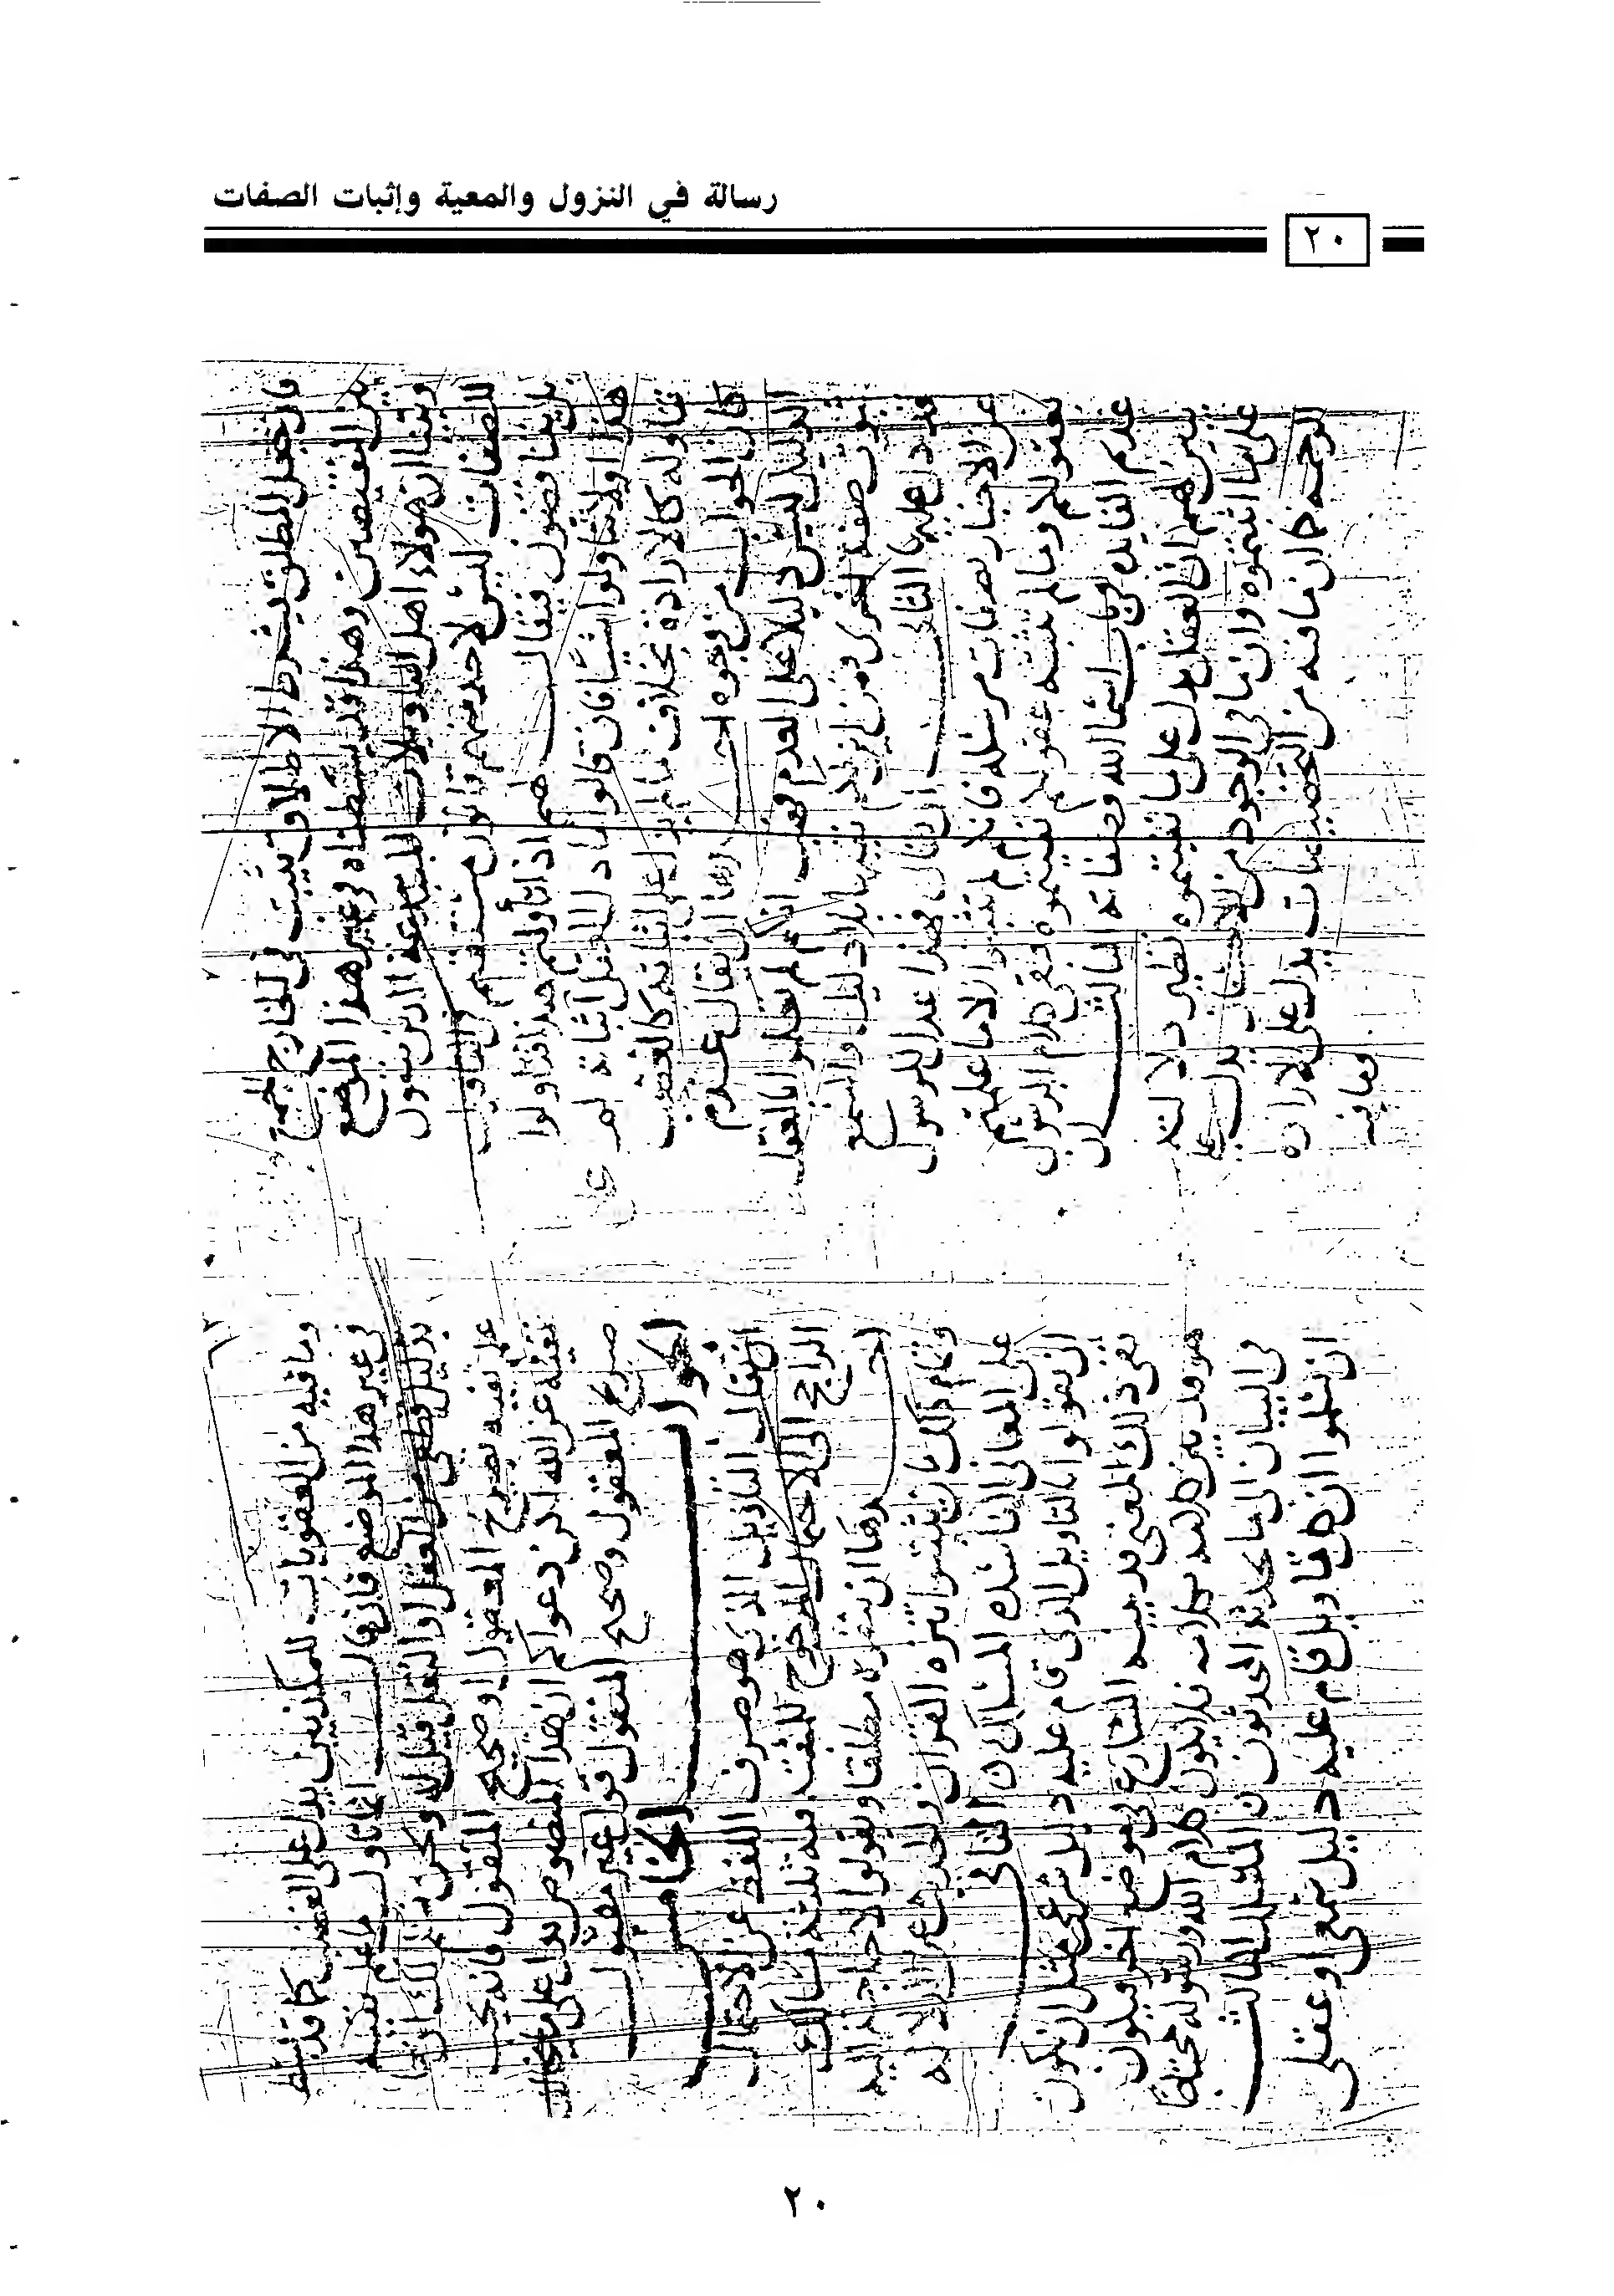 رسالة في النزول والمعية وإثبات الصفات
٢٠
فان جعل المطلق بشرط الاطلاق يثبت في الخارج جمع
بين النقيضين وهذا قد بسطناه في غير هذا الموضع
وبينا ان هولاء اهل التاويلات المبتدعة الذين ينفون
الصفات ليس لاحد منهم قانون مستقيم في التاويل
فيقال لهم اذا تأولتم هذا فتاولوا
هذا او لا تتاولوا شيا فان قالوا ما دل العقل على اثباته لم
نتاوله كالارادة بخلاف ما لم يدل على اثباته كالغضب
فان الجواب من وجوه احدها ان يقال عدم
الدليل ليس دليلا على العدم وهب انكم لم تعلموا بالعقل
ثبوت صفة اخرى فمن اين لكم نفيها بلا دليل والسمع
قد دل عليها الثاني ان يقال فهذا عزل للرسول
عن الاخبار بصفات مرسله فانكم لم تثبتوا الا ما علمتم
بعقولكم وما لم تثبته عقولكم نفيتموه فبقي كلام الرسول
عديم الفايدة في باب اسما الله وصفاته الثالث ان
نبين لهم ان العقل يدل على ما نفيتموه نظير دلالته
على ما اثبتموه وان ما في الوجود من الاحسان يدل على
الرحمه كما ان ما فيه من التخصيصات يدل على الارادة
وما فيه
وما فيه من العقوبات للمكذبين يدل على الغضب كما قد بسط
في غير هذا الموضع فان قال انما اتاول ما علم نفيه
بدليل قطعي من العقل او النقل قيل له ونحن نسلم لك ان ما
علم نفيه بصريح المعقول او صحيح المنقول فانه يجب
نفيه عن الله لكن دعواكم ان هذا المنصوص يدل على ما يخالف
صريح المعقول وصحيح المنقول قول غير مقبول
الجواب الخامس
ان يقال التاويل الذي هو صرف اللفظ عن الاحتمال
الراجح الى الاحتمال المرجوح للناس فيه ثلثة مسالك
احدها ان تنفوه مطلقا وتقولوا لا حاجة اليه
وتمام ذلك بان يتبين انتزه القران والحديث عن الدلالة
على المعاني الفاسدة المسلك الثاني
ان تقولوا بالتاويل الذي قام عليه دليل شرعي مثل ان يكون
نفي ذلك المعنى قد بينه الشارع في موضع اخر فيكون
هو قد بين كلامه بكلامه فلا يكون كلام الله ورسوله محتاجا
في البيان الى ما يحدثه المحدثون المسلك الثالث
ان تسلموا ان كل تاويل قام عليه دليل سمعي او عقلي
٢٠